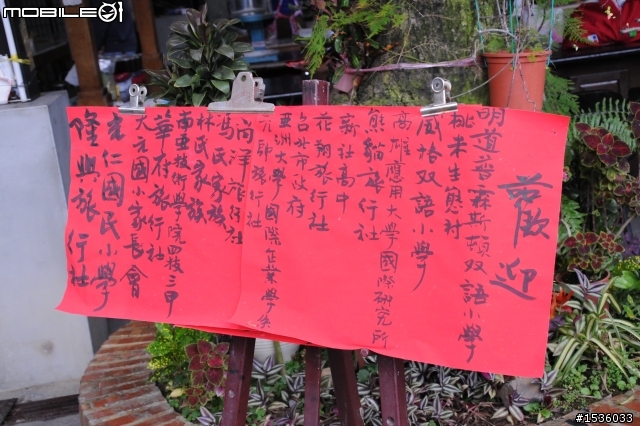 歡迎
明道普霖斯頓双語小學
桃米生態村
威格双語小學
高雄應用大學國際研究所
熊貓旅行社
新社高中
花翔旅行社
台北市政府
亞洲大學國際企業學系
元郎旅行社
尚洋旅行社
馮氏家族
林氏家族
南亞技術學院四技三甲
華府旅行社
大元國小家長會
光仁國民小學
隆興旅行社
MOBILE01
#1536033